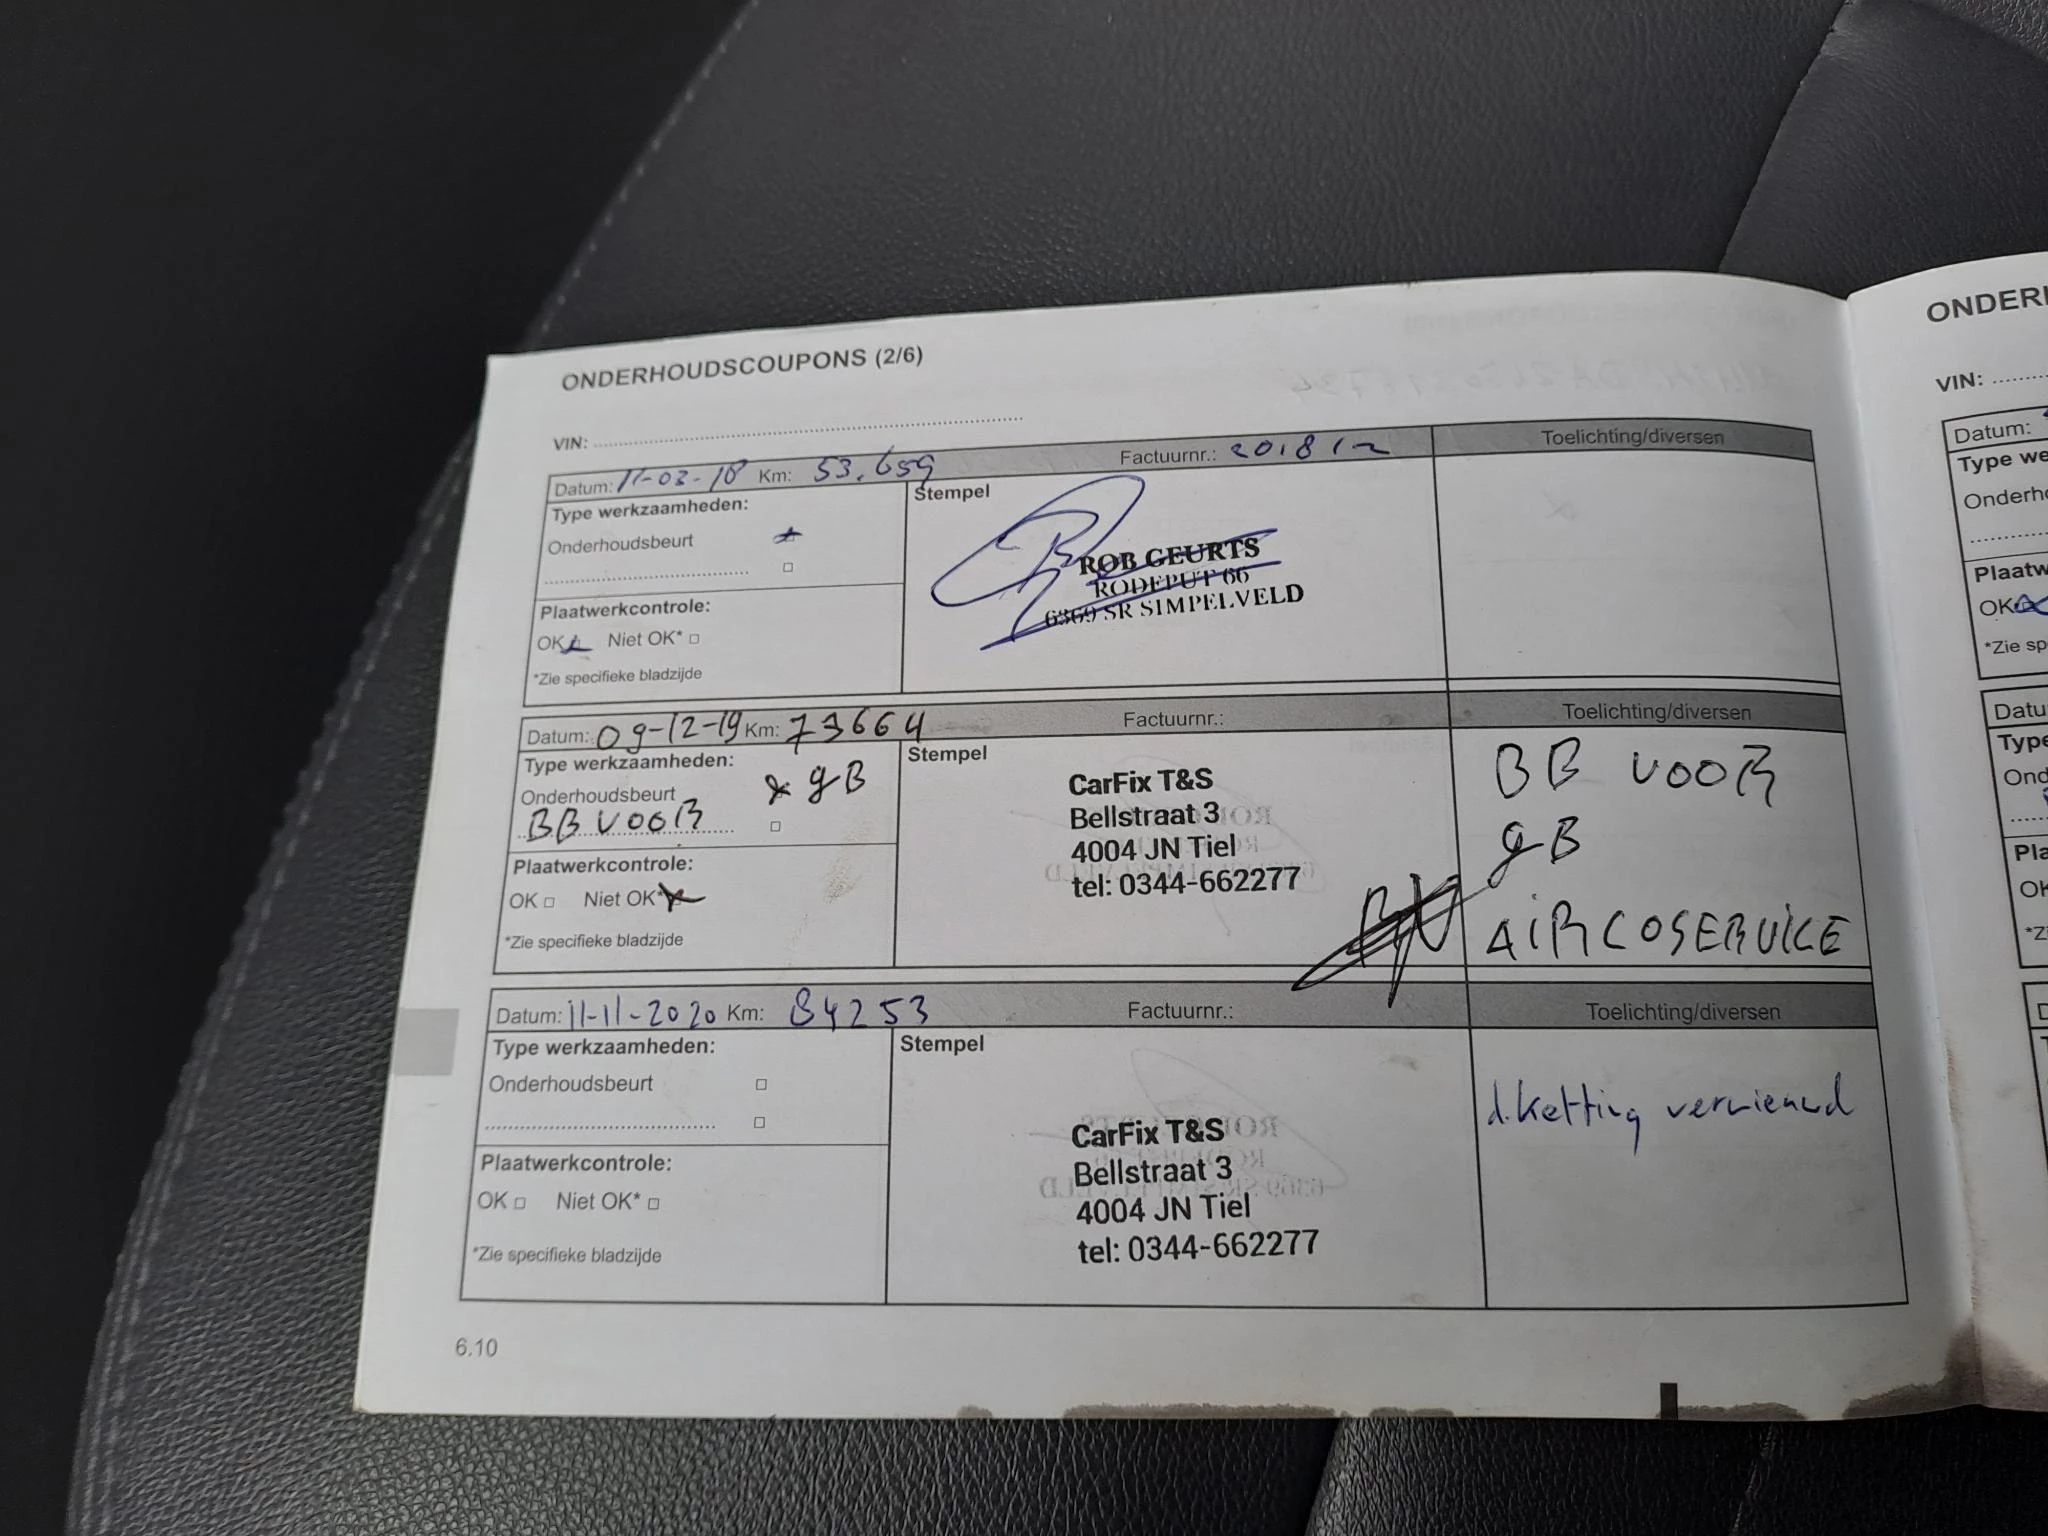 ONDERHOUDSCOUPONS (2/6)
VIN:
Datum: 11-03-18 Km: 53.659 Factuurnr.: 201812 Toelichting/diversen
Type werkzaamheden:
Onderhoudsbeurt
Plaatwerkcontrole:
OK Niet OK*
*Zie specifieke bladzijde
Stempel
ROB GEURTS
RODEPUT 66
6369 SR SIMPELVELD
Datum: 09-12-19 Km: 73664 Factuurnr.: Toelichting/diversen
Type werkzaamheden:
Onderhoudsbeurt x gB
BB VOOR
Plaatwerkcontrole:
OK Niet OK*
*Zie specifieke bladzijde
Stempel
CarFix T&S
Bellstraat 3
4004 JN Tiel
tel: 0344-662277
BB VOOR
gB
AIRCOSERVICE
Datum: 11-11-2020 Km: 84253 Factuurnr.: Toelichting/diversen
Type werkzaamheden:
Onderhoudsbeurt
Plaatwerkcontrole:
OK Niet OK*
*Zie specifieke bladzijde
Stempel
CarFix T&S
Bellstraat 3
4004 JN Tiel
tel: 0344-662277
d.ketting vernieuwd
6.10
ONDER
VIN:
Datum:
Type we
Onderho
Plaatw
OK
*Zie sp
Datu
Type
Ond
Pla
OK
*Z